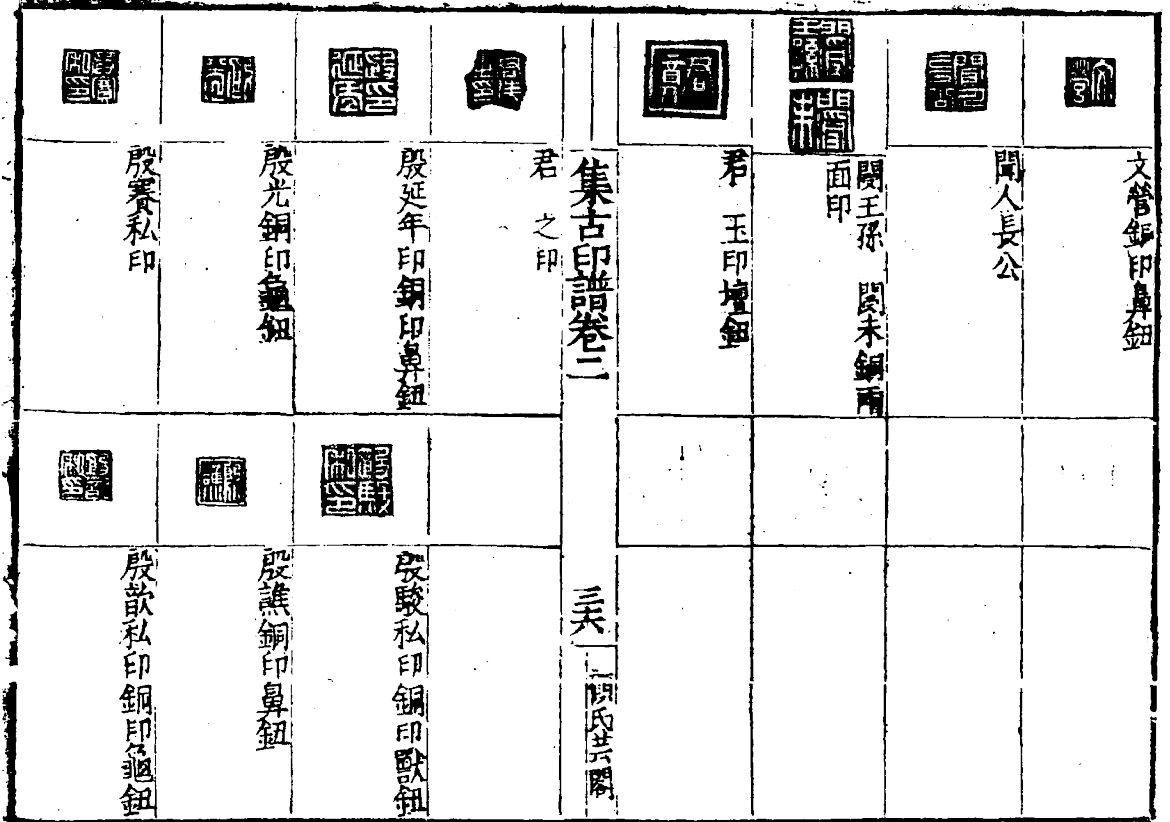 文營銅印鼻鈕
聞人長公
閔王孫 閔未銅兩
面印
君 玉印壇鈕
集古印譜卷二
三六
顧氏芸閣
君 之印
殷延年印銅印鼻鈕
殷光銅印龜鈕
殷賽私印
殷駿私印銅印獸鈕
殷譙銅印鼻鈕
殷歆私印銅印龜鈕